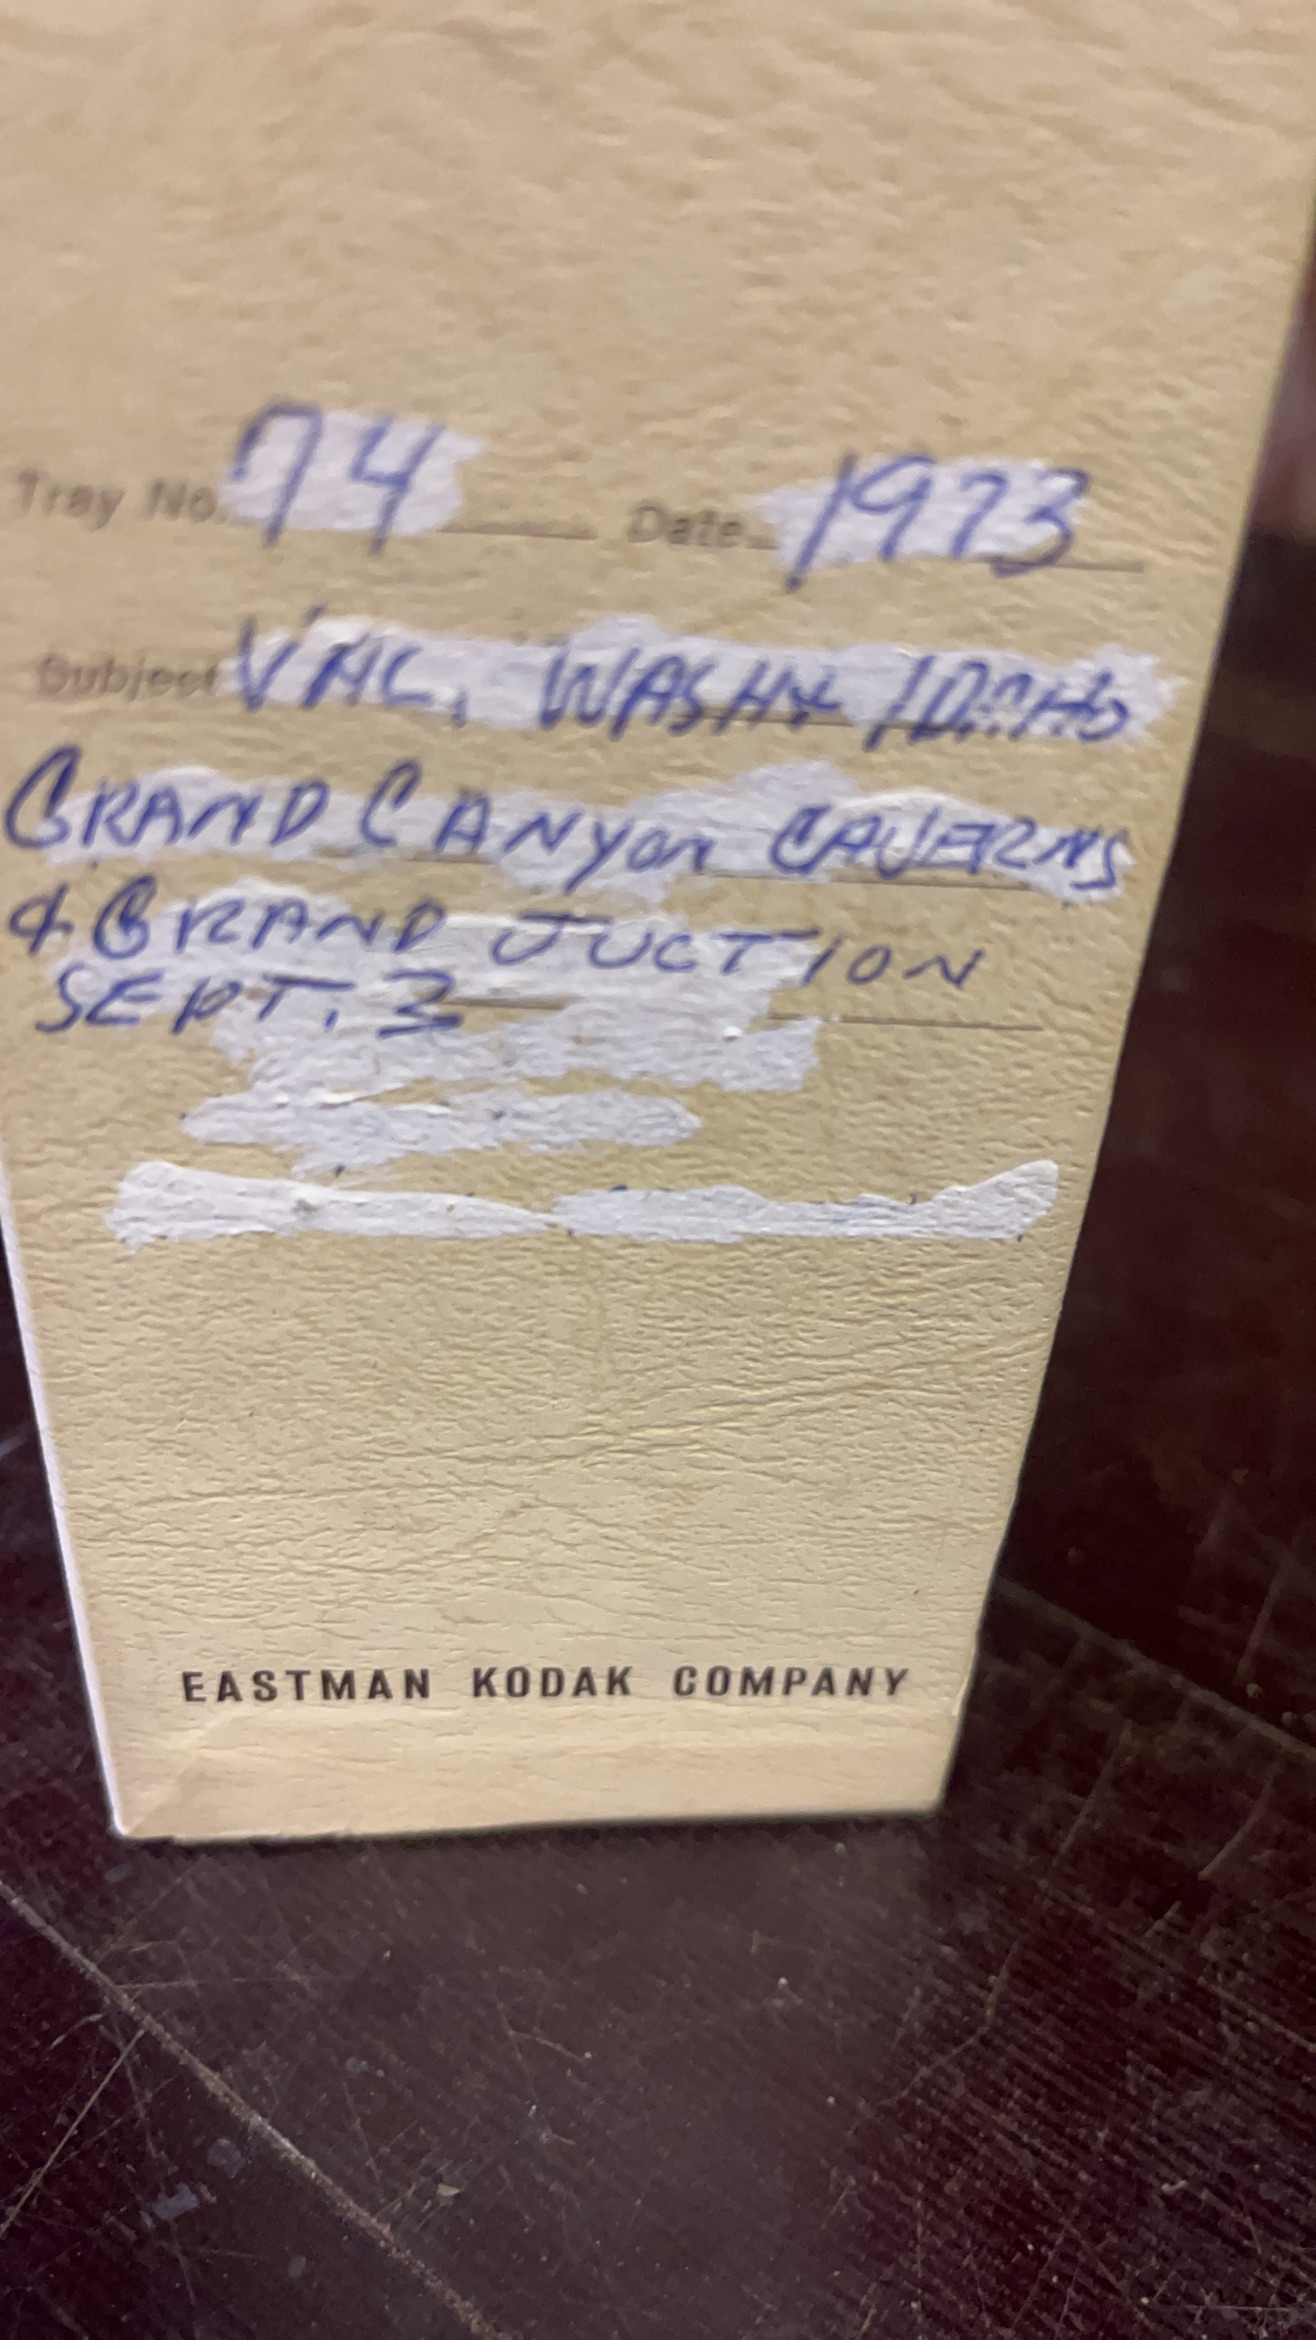 Tray No. 74 Date 1973
Subject VAC, WASH & IDAHO
GRAND CANYON CAVERNS
& GRAND JUCTION
SEPT. 3
EASTMAN KODAK COMPANY